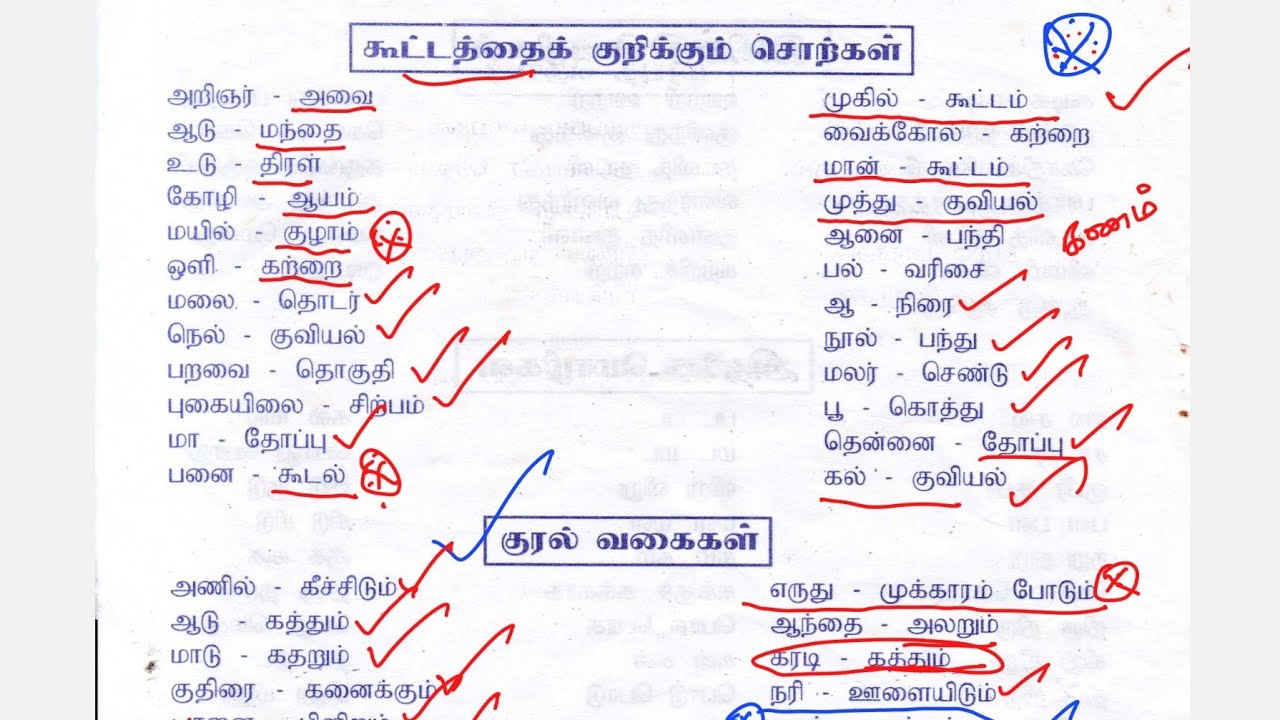 கூட்டத்தைக் குறிக்கும் சொற்கள்
அறிஞர் அவை
ஆடு மந்தை
உடு - திரள்
கோழி - ஆயம்
மயில் - குழாம்
ஒளி - கற்றை
மலை - தொடர்
நெல் - குவியல்
பறவை - தொகுதி
புகையிலை - சிற்பம்
மா - தோப்பு
பனை - கூடல்
முகில் - கூட்டம்
வைக்கோல் - கற்றை
மான் கூட்டம்
முத்து - குவியல்
ஆனை - பந்தி கணம்
பல் - வரிசை
ஆ - நிரை
நூல் - பந்து
மலர் - செண்டு
பூ - கொத்து
தென்னை - தோப்பு
கல் - குவியல்
குரல் வகைகள்
அணில் - கீச்சிடும்
ஆடு - கத்தும்
மாடு - கதறும்
குதிரை - கனைக்கும்
எருது - முக்காரம் போடும்
ஆந்தை - அலறும்
கரடி - கத்தும்
நரி - ஊளையிடும்